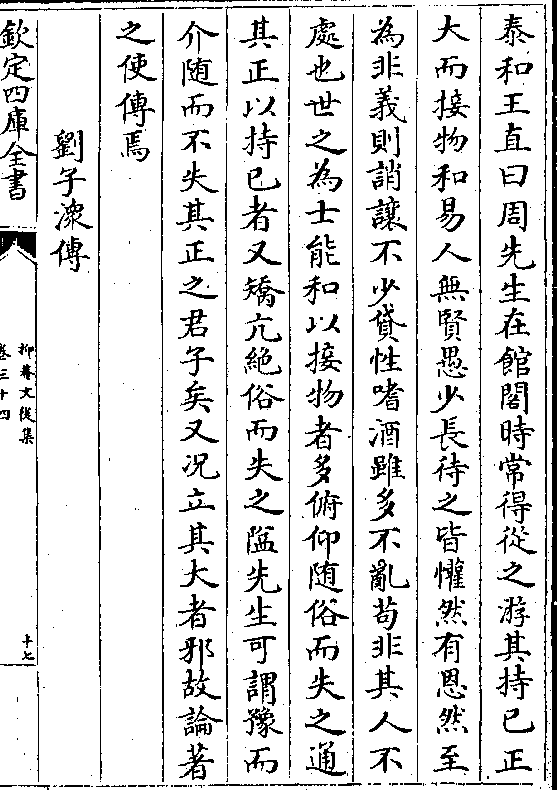 泰和王直曰周先生在館閣時常得從之游其持已正
大而接物和易人無賢愚少長待之皆懽然有恩然至
為非義則誚讓不少貸性嗜酒雖多不亂茍非其人不
處也世之為士能和以接物者多俯仰随俗而失之通
其正以持已者又矯亢絶俗而失之隘先生可謂豫而
介随而不失其正之君子矣又况立其大者邪故論著
之使傳焉
劉子潨傳
欽定四庫全書
抑菴文後集
卷三十四
十七